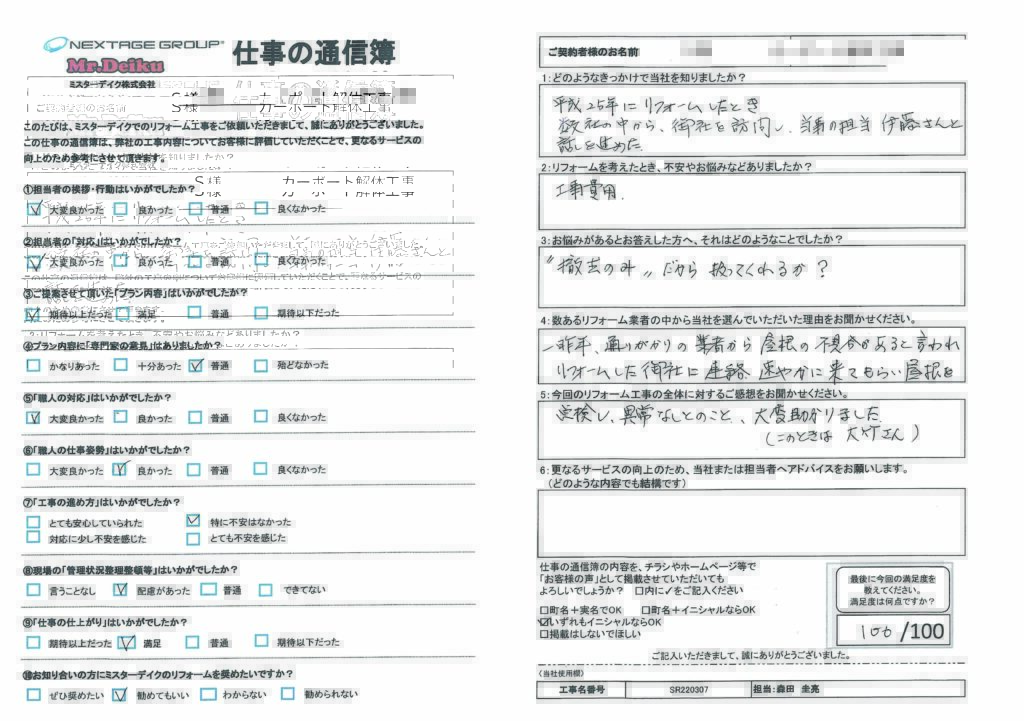 NEXTAGE GROUP
仕事の通信簿
Mr.Deiku
ミスターデイク株式会社
S様 カーポート解体工事
このたびは、ミスターデイクでのリフォーム工事をご依頼いただきまして、誠にありがとうございました。
この仕事の通信簿は、弊社の工事内容についてお客様に評価していただくことで、更なるサービスの
向上のため参考にさせて頂きます。
S様 カーポート解体工事
①担当者の挨拶・行動はいかがでしたか?
☑ 大変良かった □ 良かった □ 普通 □ 良くなかった
②担当者の「対応」はいかがでしたか?
☑ 大変良かった □ 良かった □ 普通 □ 良くなかった
③ご提案させて頂いた「プラン内容」はいかがでしたか?
☑ 期待以上だった □ 満足 □ 普通 □ 期待以下だった
④プラン内容に「専門家の意見」はありましたか?
□ かなりあった □ 十分あった ☑ 普通 □ 殆どなかった
⑤「職人の対応」はいかがでしたか?
☑ 大変良かった □ 良かった □ 普通 □ 良くなかった
⑥「職人の仕事姿勢」はいかがでしたか?
□ 大変良かった ☑ 良かった □ 普通 □ 良くなかった
⑦「工事の進め方」はいかがでしたか?
□ とても安心していられた ☑ 特に不安はなかった
□ 対応に少し不安を感じた □ とても不安を感じた
⑧現場の「管理状況整理整頓等」はいかがでしたか?
□ 言うことなし ☑ 配慮があった □ 普通 □ できてない
⑨「仕事の仕上がり」はいかがでしたか?
□ 期待以上だった ☑ 満足 □ 普通 □ 期待以下だった
⑩お知り合いの方にミスターデイクのリフォームを奨めたいですか?
□ ぜひ奨めたい ☑ 勧めてもいい □ わからない □ 勧められない
ご契約者様のお名前
1:どのようなきっかけで当社を知りましたか?
平成25年にリフォームしたとき
数社の中から、御社を訪問し、当時の担当 伊藤さんと
話しを進めた
2:リフォームを考えたとき、不安やお悩みなどありましたか?
工事費用.
3:お悩みがあるとお答えした方へ、それはどのようなことでしたか?
"撤去のみ" だから 扱ってくれるか?
4:数あるリフォーム業者の中から当社を選んでいただいた理由をお聞かせください。
一昨年、通りがかりの業者から屋根の不具合があると言われ
リフォームした御社に連絡 速やかに来てもらい屋根を
5:今回のリフォーム工事の全体に対するご感想をお聞かせください。
点検し、異常なしとのこと、大変助かりました
(このときは 大竹さん)
6:更なるサービスの向上のため、当社または担当者へアドバイスをお願いします。
(どのような内容でも結構です)
仕事の通信簿の内容を、チラシやホームページ等で
「お客様の声」として掲載させていただいても
よろしいでしょうか? □内に✓をご記入ください
□町名+実名でOK □町名+イニシャルならOK
☑いずれもイニシャルならOK
□掲載はしないでほしい
最後に今回の満足度を
教えてください。
満足度は何点ですか?
100/100
ご記入いただきまして、誠にありがとうございました。
(当社使用欄)
工事名番号 SR220307 担当:森田 圭亮